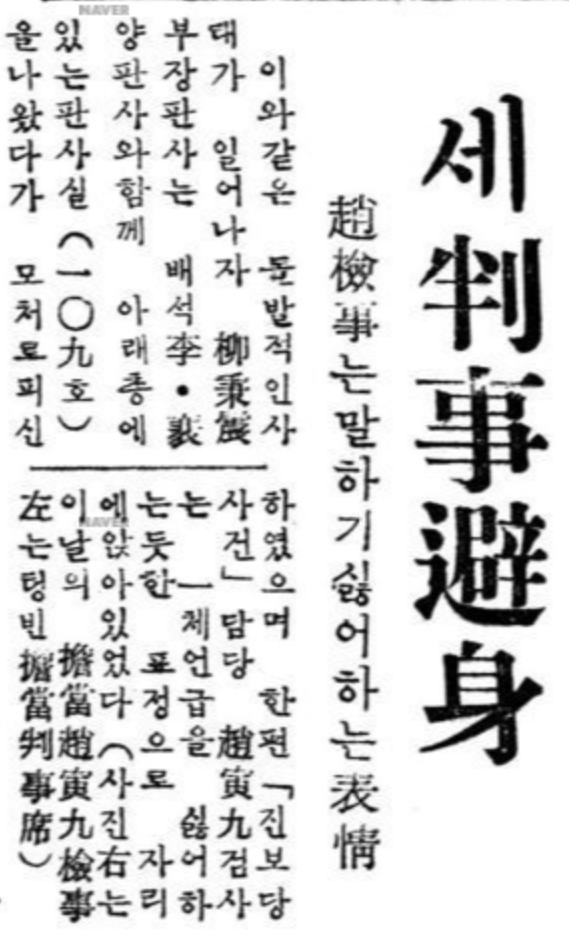 세判事避身
趙檢事는말하기싫어하는表情
이와같은 돌발적인사
태가 일어나자 柳秉震
부장판사는 배석李·裵
양판사와함께 아래층에
있는판사실(一〇九호)
올나왔다가 모처로피신
하였으며 한편「진보당
사건」담당 趙寅九검사
는 一체언급을 싫어하
는듯한 표정으로 자리
에앉아있었다(사진右는
이날의 擔當趙寅九檢事
左는텅빈 擔當判事席)
NAVER
NAVER